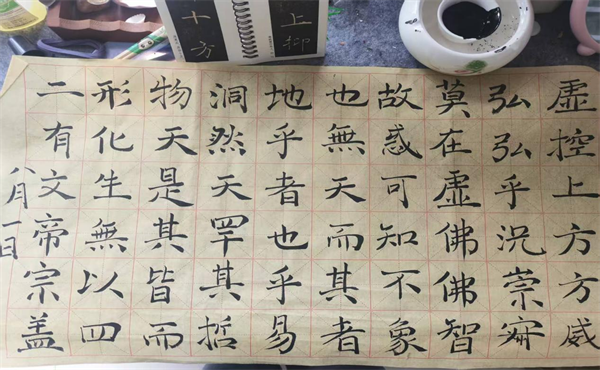 上抑
十方
虛控上方方威
弘弘乎況崇寂
莫在虛佛佛智
故惑可知不象
也無天而其者
地乎者也乎易
洞然天罕其哲
物天是其皆而
形化生無以四
二有文帝宗盖
八月一日